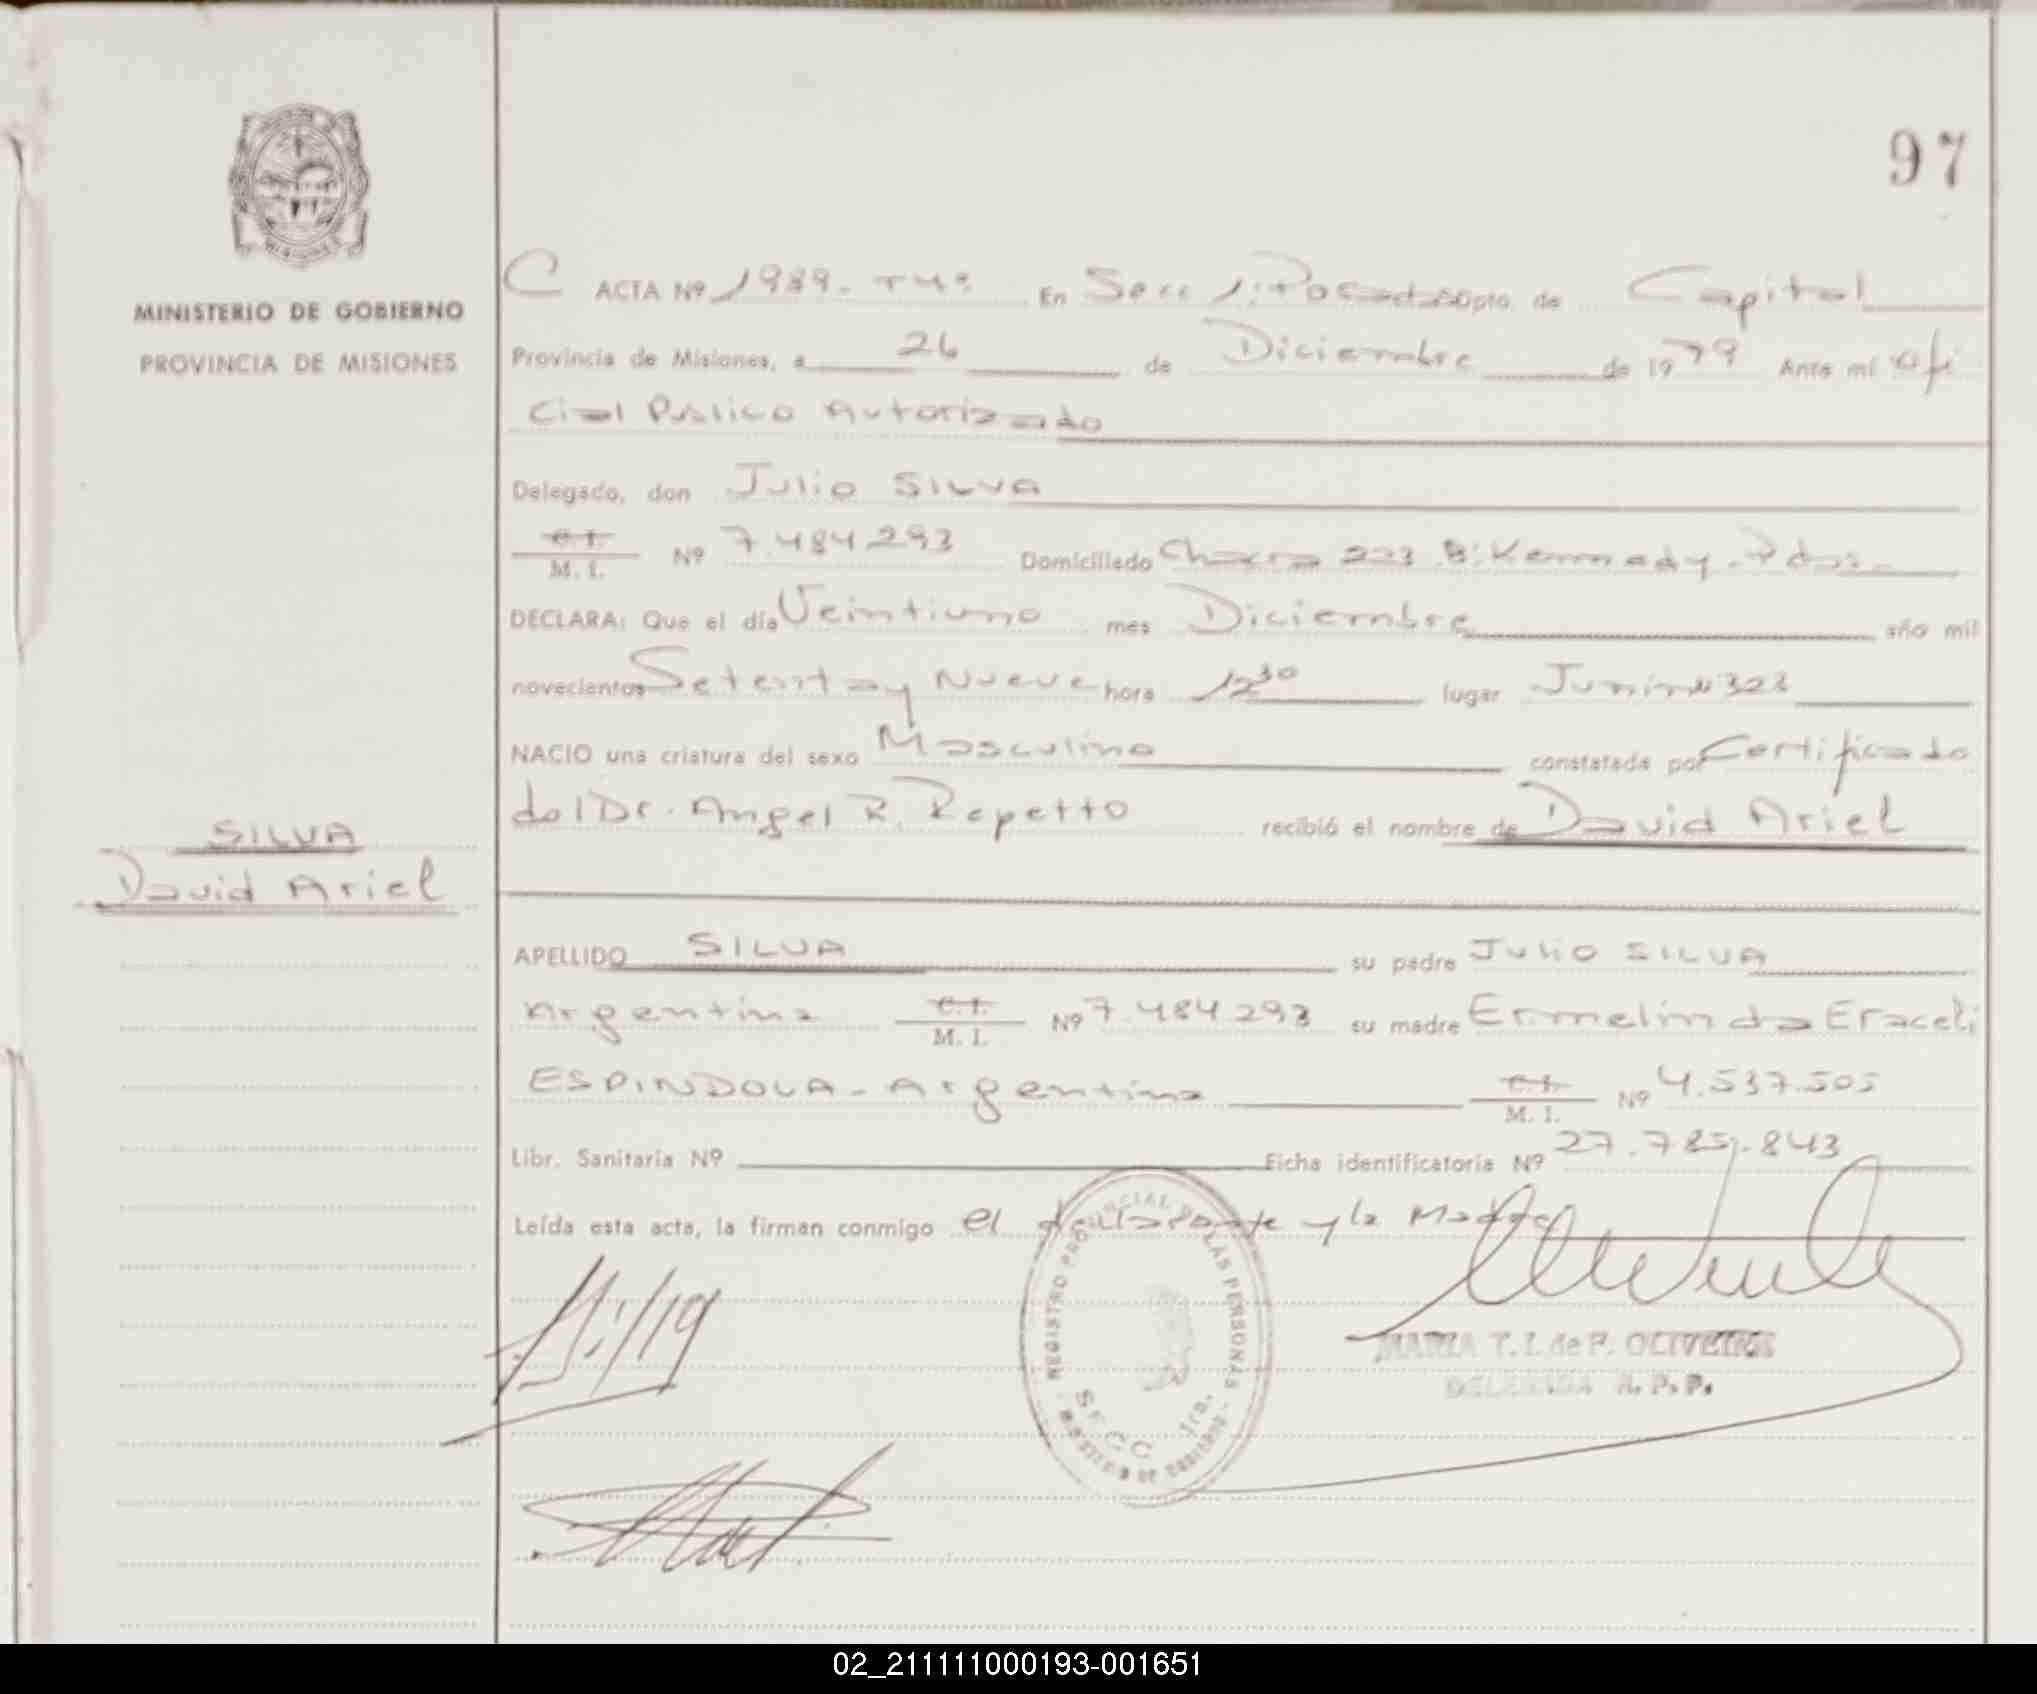 97
MINISTERIO DE GOBIERNO
PROVINCIA DE MISIONES
C ACTA Nº 1989 - T4º En Secc 1: Posadas Dpto. de Capital
Provincia de Misiones, a 26 de Diciembre de 1979 Ante mí Ofi
cial Publico Autorizado
Delegado, don Julio SILVA
C.I. M. I. Nº 7.484.293 Domiciliado Chacra 223 B: Kennedy - Pdas -
DECLARA: Que el día Veintiuno mes Diciembre año mil
novecientos Setenta y Nueve hora 12 30 lugar Junin 323
NACIO una criatura del sexo Masculino constatada por Certificado
del Dr. Angel R. Repetto recibió el nombre de David Ariel
SILVA
David Ariel
APELLIDO SILVA su padre Julio SILVA
Argentino C.I. M. I. Nº 7.484.293 su madre Ermelinda Eraceli
ESPINDOLA - Argentina C.I. M. I. Nº 4.537.505
Libr. Sanitaria Nº Ficha identificatoria Nº 27.785.843
Leída esta acta, la firman conmigo el declarante y la Madre
REGISTRO PROVINCIAL DE LAS PERSONAS
SECC 1ra.
MINISTERIO DE GOBIERNO
MARIA T. I. de F. OLIVEIRA
DELEGADA R. P. P.
02_211111000193-001651